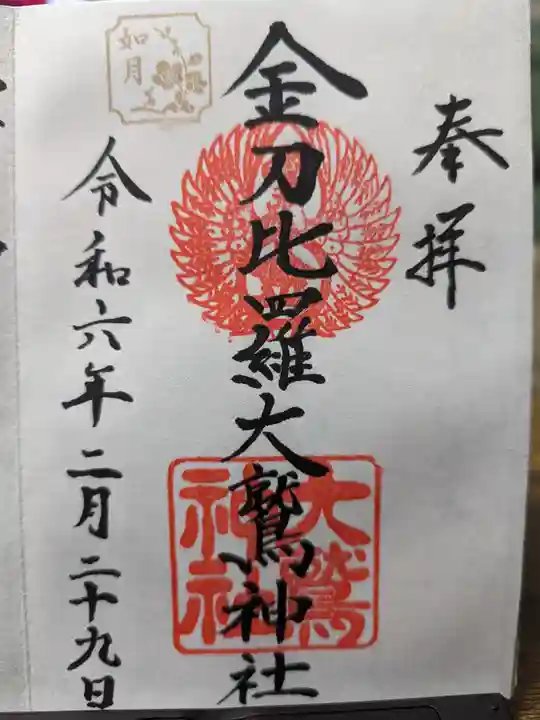 奉拝
金刀比羅大鷲神社
大鷲
神社
如月
令和六年二月二十九日